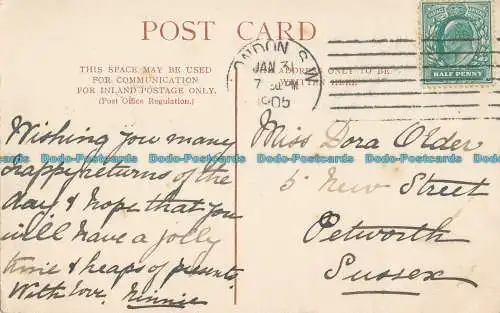 POST CARD
THIS SPACE MAY BE USED
FOR COMMUNICATION
FOR INLAND POSTAGE ONLY.
(Post Office Regulation.)
Wishing you many
happy returns of the
day & hope that you
will have a jolly
time & heaps of presents
With love, Minnie
LONDON S.W
JAN 31
7
1905
ADDRESS ONLY TO BE
WRITTEN HERE
HALF PENNY
Miss Dora Older
5 New Street
Petworth
Sussex
Dodo-Postcards Dodo-Postcards Dodo-Postcards Dodo-Postcards